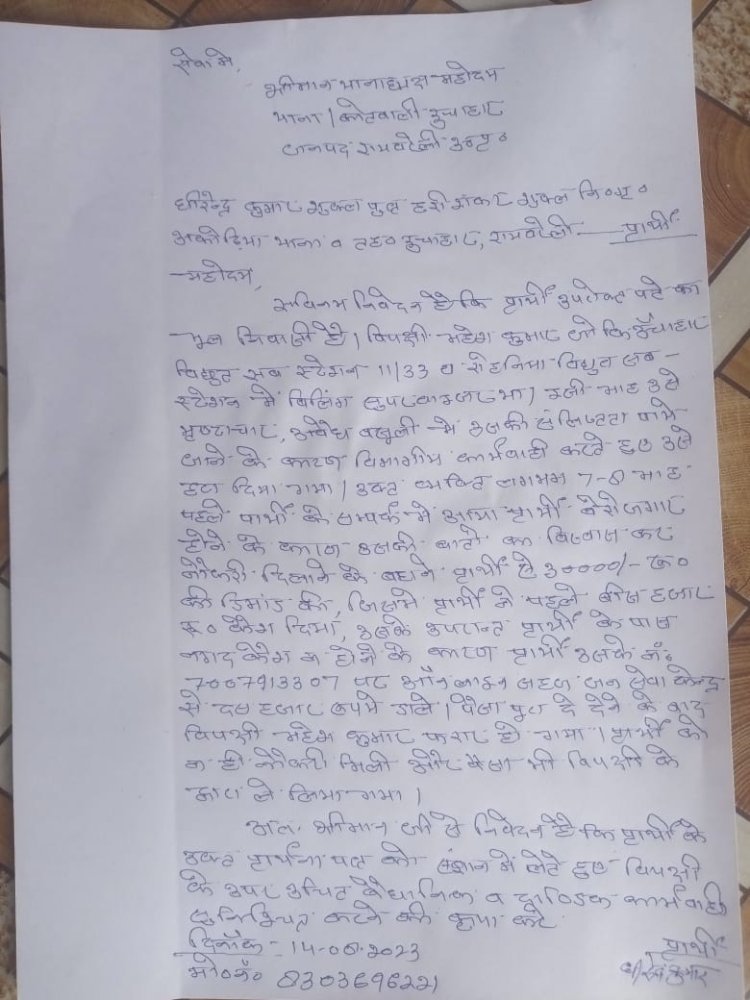 सेवा में,
श्रीमान थानाध्यक्ष महोदय
थाना / कोतवाली ऊँचाहार
जनपद रायबरेली उ०प्र०
धीरेन्द्र कुमार शुक्ल पुत्र हरी शंकर शुक्ल नि०ग्रा०
अकोढ़िया थाना व तह० ऊँचाहार, रायबरेली — प्रार्थी
महोदय,
सविनय निवेदन है कि प्रार्थी उपरोक्त पते का
मूल निवासी है। विपक्षी महेश कुमार जो कि ऊँचाहार
विद्युत सब स्टेशन 11/33 व रोहनिया विद्युत सब-
स्टेशन में बिलिंग सुपरवाइजर था। इसी माह उसे
भ्रष्टाचार, अवैध वसूली में उसकी संलिप्तता पाये
जाने के कारण विभागीय कार्यवाही करते हुए उसे
हटा दिया गया। उक्त व्यक्ति लगभग 7-8 माह
पहले प्रार्थी के सम्पर्क में आया प्रार्थी बेरोजगार
होने के कारण उसकी बातों का विश्वास कर
नौकरी दिलाने के बहाने प्रार्थी से 30000/- रू०
की डिमांड की, जिसमे प्रार्थी ने पहले बीस हजार
रू० कैश दिया, उसके उपरान्त प्रार्थी के पास
नगद कैश न होने के कारण प्रार्थी उसके नं०
7007913307 पर ऑनलाइन सहज जन सेवा केन्द्र
से दस हजार रुपये डाले। पैसा पूरा दे देने के बाद
विपक्षी महेश कुमार फरार हो गया। प्रार्थी को
न ही नौकरी मिली और पैसा भी विपक्षी के
द्वारा ले लिया गया।
अतः श्रीमान जी से निवेदन है कि प्रार्थी के
उक्त प्रार्थना पत्र को संज्ञान में लेते हुए विपक्षी
के उपर उचित वैधानिक व दाण्डिक कार्यवाही
सुनिश्चित करने की कृपा करें
दिनाँक - 14-08-2023 प्रार्थी
मो०नं० 8303696221